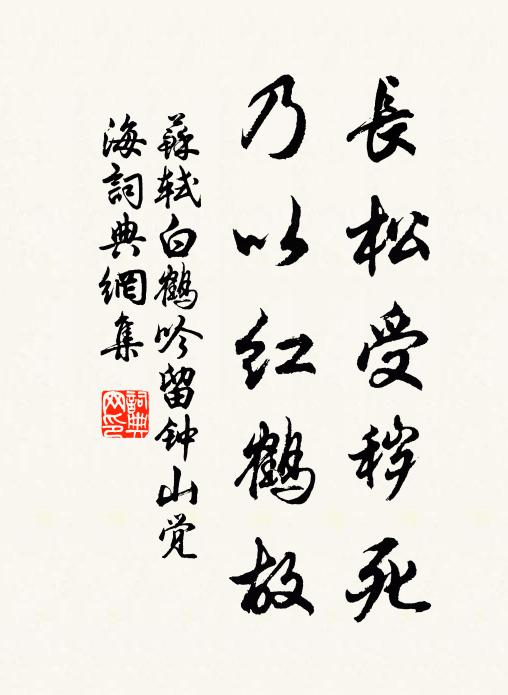 長松受穢死
乃以红鶴故
蘇軾白鶴吟留钟山觉
海詞典網集
詞典
网印